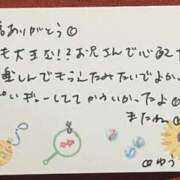 ありがとう
も大丈夫!?お兄さんで心配た
楽しんでもらえたみたいでよかっ
ぱいギューしててかわいかったよ
またね
ゆう